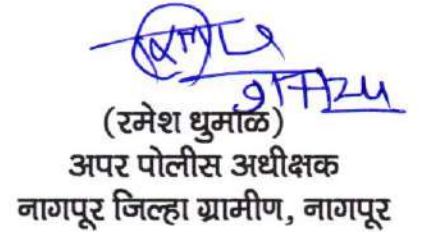 (रमेश धुमाळ)
अपर पोलीस अधीक्षक
नागपूर जिल्हा ग्रामीण, नागपूर